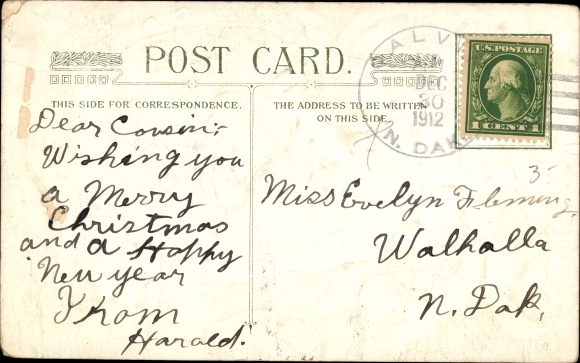 POST CARD.
THIS SIDE FOR CORRESPONDENCE.
THE ADDRESS TO BE WRITTEN
ON THIS SIDE.
Dear Cousin:-
Wishing you
a Merry
Christmas
and a Happy
New year
From
Harold.
DEC
30
1912
N. DAK.
U.S. POSTAGE
1 CENT 1
Miss Evelyn Fleming,
Walhalla
N. Dak.